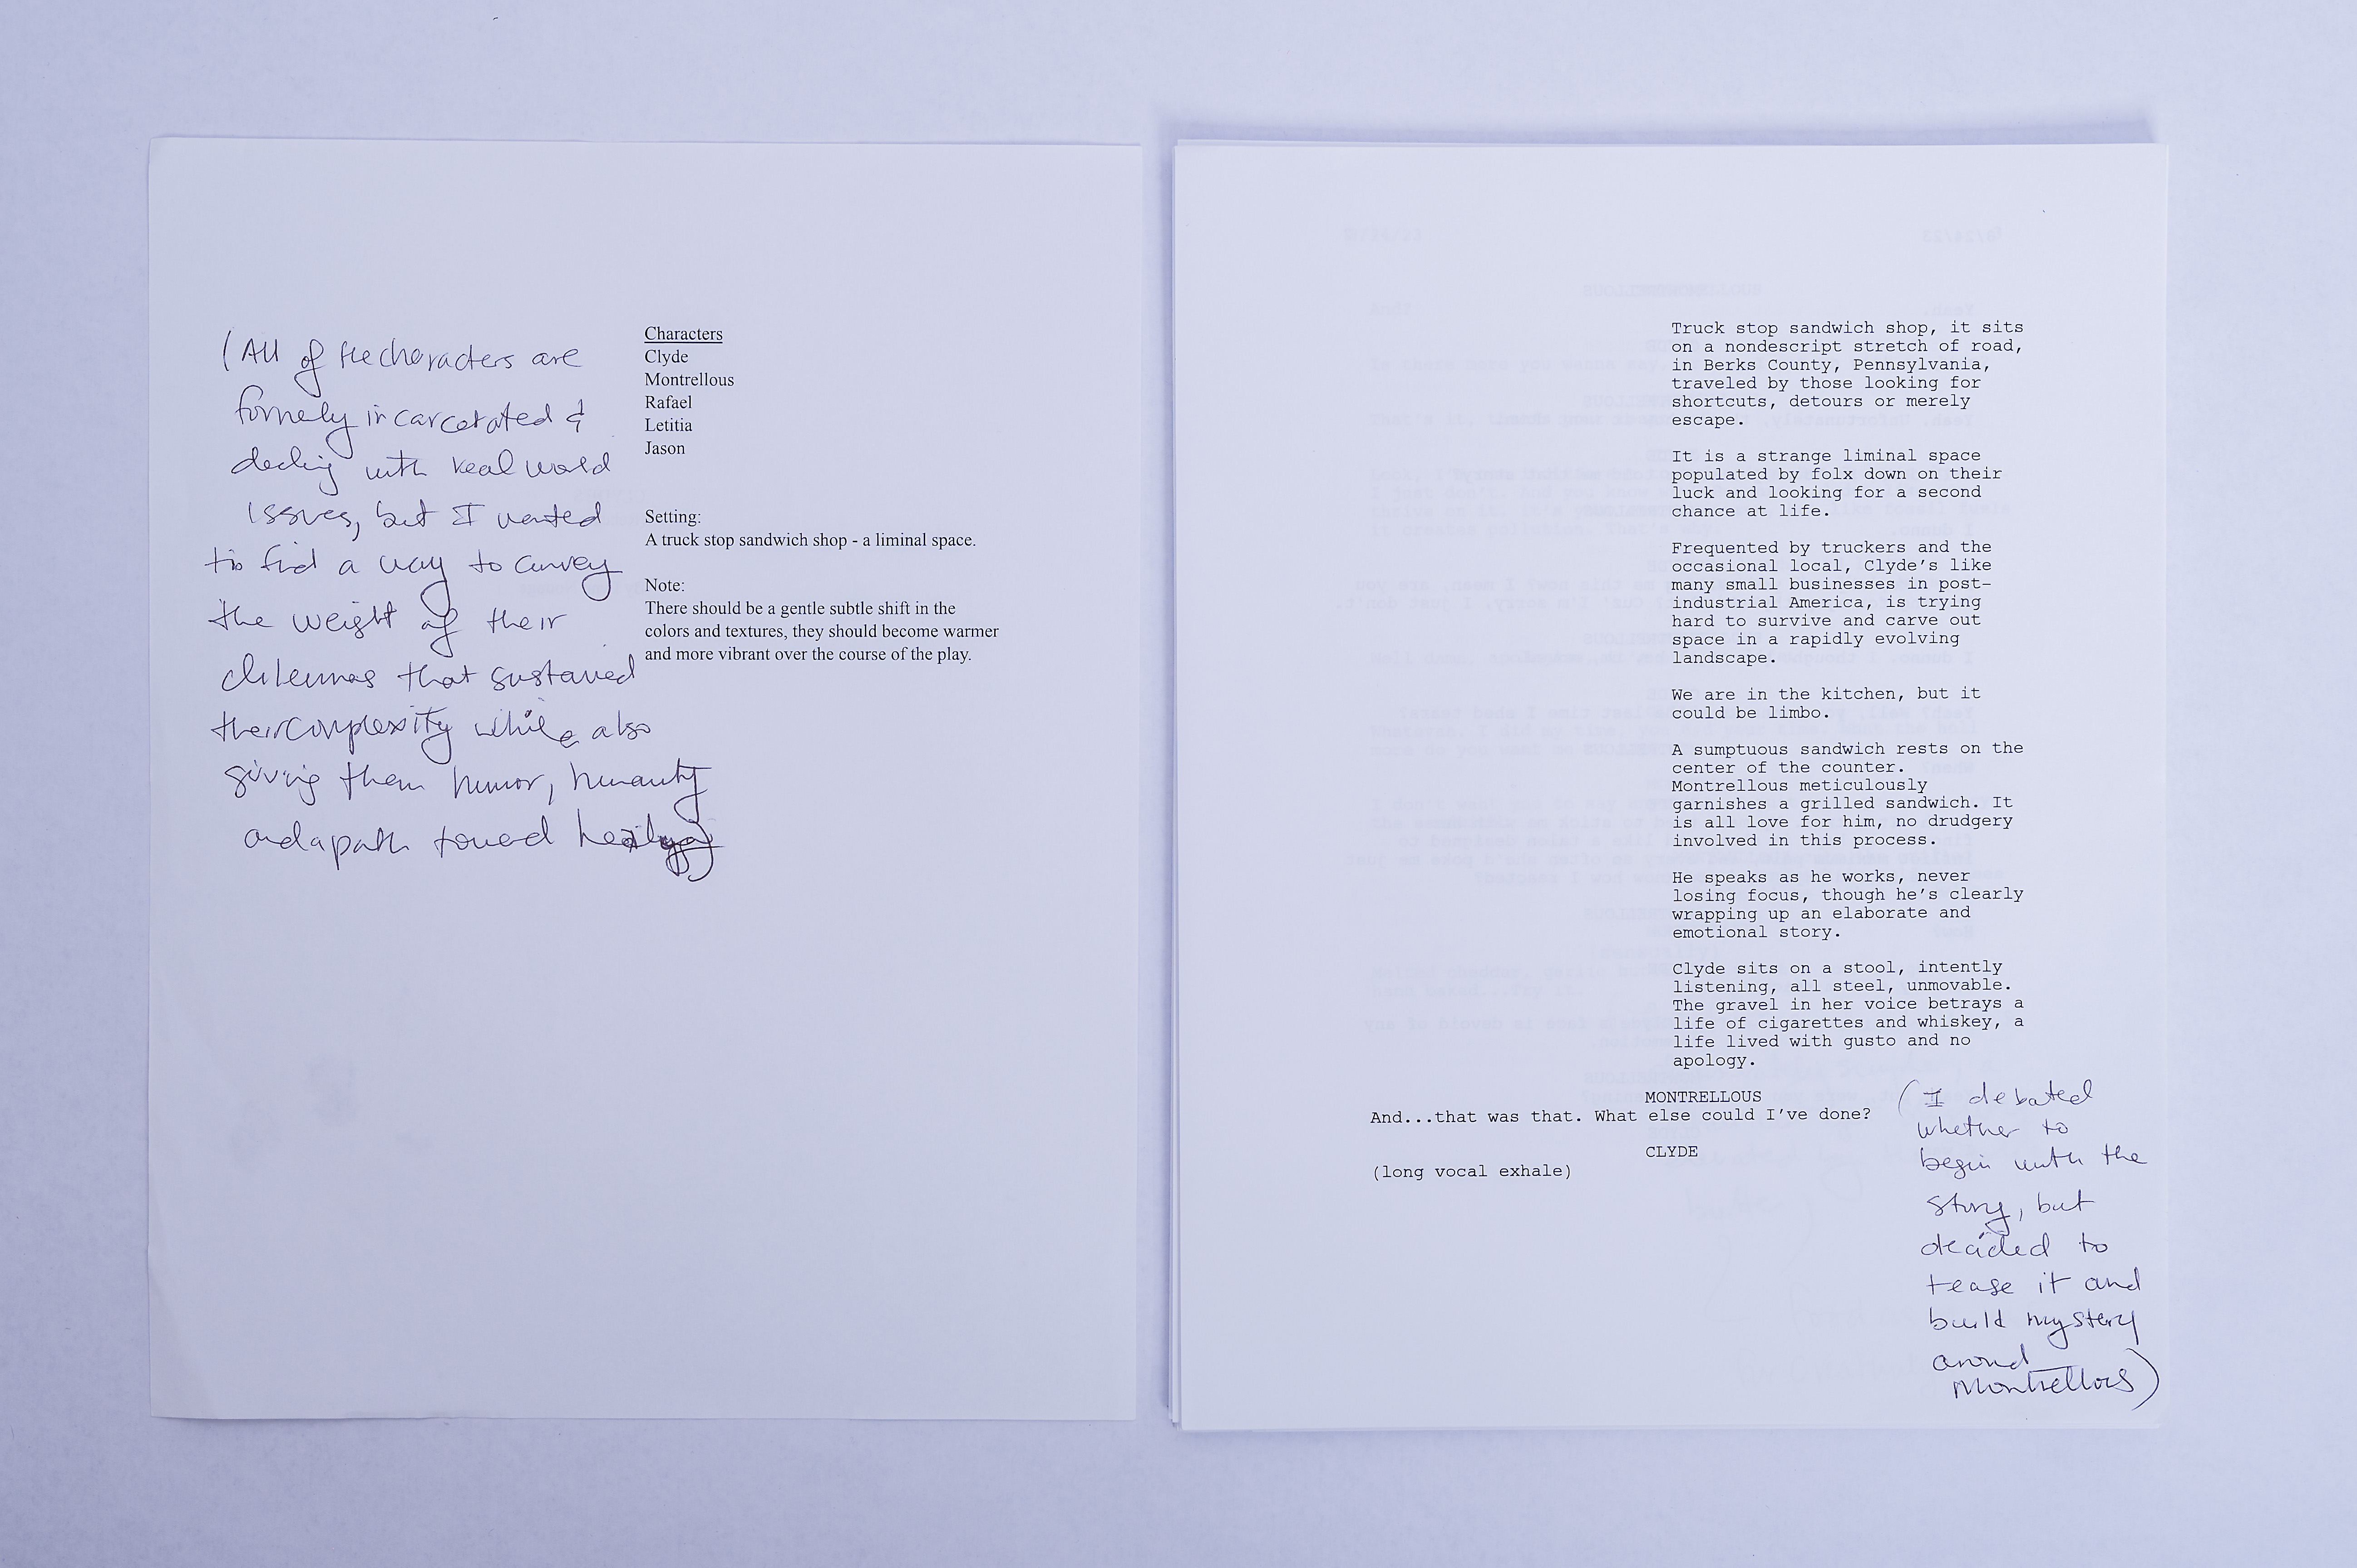 (All of the characters are
formely incarcerated &
dealing with real world
issues, but I wanted
to find a way to convey
the weight of their
dilemmas that sustained
their complexity while also
giving them humor, humanity
and a path toward healing)
Characters
Clyde
Montrellous
Rafael
Letitia
Jason
Setting:
A truck stop sandwich shop - a liminal space.
Note:
There should be a gentle subtle shift in the
colors and textures, they should become warmer
and more vibrant over the course of the play.
Truck stop sandwich shop, it sits
on a nondescript stretch of road,
in Berks County, Pennsylvania,
traveled by those looking for
shortcuts, detours or merely
escape.
It is a strange liminal space
populated by folx down on their
luck and looking for a second
chance at life.
Frequented by truckers and the
occasional local, Clyde's like
many small businesses in post-
industrial America, is trying
hard to survive and carve out
space in a rapidly evolving
landscape.
We are in the kitchen, but it
could be limbo.
A sumptuous sandwich rests on the
center of the counter.
Montrellous meticulously
garnishes a grilled sandwich. It
is all love for him, no drudgery
involved in this process.
He speaks as he works, never
losing focus, though he's clearly
wrapping up an elaborate and
emotional story.
Clyde sits on a stool, intently
listening, all steel, unmovable.
The gravel in her voice betrays a
life of cigarettes and whiskey, a
life lived with gusto and no
apology.
MONTRELLOUS
And...that was that. What else could I've done?
CLYDE
(long vocal exhale)
(I debated
whether to
begin with the
story, but
decided to
tease it and
build mystery
around
Montrellous)